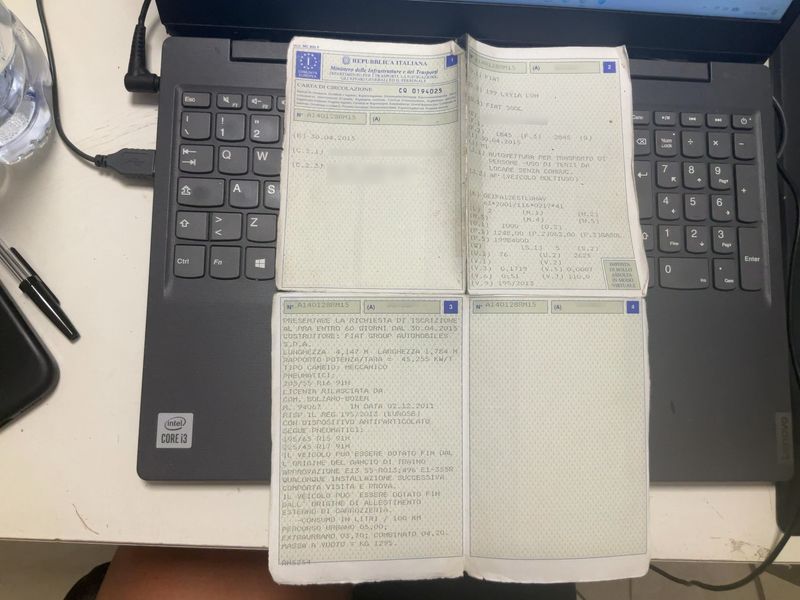 REPUBBLICA ITALIANA
Ministero delle Infrastrutture e dei Trasporti
CARTA DI CIRCOLAZIONE
CQ 0194025
1
N° A140128RM15
(A)
(B) 30.04.2015
(C.2.3)
N° A140128RM15
(A)
2
FIAT
199 LYY1A LGM
FIAT 500L
1845 (F.3) 2845 (G)
30.04.2015
M1
AUTOVETTURA PER TRASPORTO DI
PERSONE -USO DI TERZI DA
LOCARE SENZA CONDUC.
AF (VEICOLO MULTIUSO)
2 (N.1) (N.2)
1000 (O.2)
(P.1) 1248,00 (P.2)063,00 (P.3)GASOL
(P.5) 199B4000
(S.1) 5 (S.2)
76 (U.2) 2625
(V.3) 0,1719 (V.5) 0,0007
(V.6) 0,51 (V.7) 110,0
(V.9) 195/2013
IMPOSTA
DI BOLLO
ASSOLTA
IN MODO
VIRTUALE
N° A140128RM15
(A)
3
PRESENTARE LA RICHIESTA DI ISCRIZIONE
AL PRA ENTRO 60 GIORNI DAL 30.04.2015
COSTRUTTORE: FIAT GROUP AUTOMOBILES
S.P.A.
LUNGHEZZA 4,147 M LARGHEZZA 1,784 M
RAPPORTO POTENZA/TARA = 45,255 KW/T
TIPO CAMBIO: MECCANICO
PNEUMATICI:
205/55 R16 91H
LICENZA RILASCIATA DA
COM. BOLZANO-BOZEN
N. 94067 IN DATA 02.12.2011
RISP IL REG 195/2013 (EURO5B)
CON DISPOSITIVO ANTIPARTICOLATO
SEGUE PNEUMATICI:
195/65 R15 91H
225/45 R17 91H
IL VEICOLO PUO'ESSERE DOTATO FIN DAL
L'ORIGINE DEL GANCIO DI TRAINO
APPROVAZIONE E13 55-R013;496 E1-55R
QUALUNQUE INSTALLAZIONE SUCCESSIVA
COMPORTA VISITA E PROVA.
IL VEICOLO PUO' ESSERE DOTATO FIN
DALL' ORIGINE DI ALLESTIMENTO
ESTERNO DI CARROZZERIA.
-CONSUMO IN LITRI / 100 KM
PERCORSO URBANO 05,00;
EXTRAURBANO 03,70; COMBINATO 04,20.
MASSA A VUOTO = KG 1295.
N° A140128RM15
(A)
4
intel
CORE i3
Lenovo
Q
W
A
S
Z
Ctrl
Fn
Num Lock
7
8
9
4
5
6
1
2
3
0
Enter